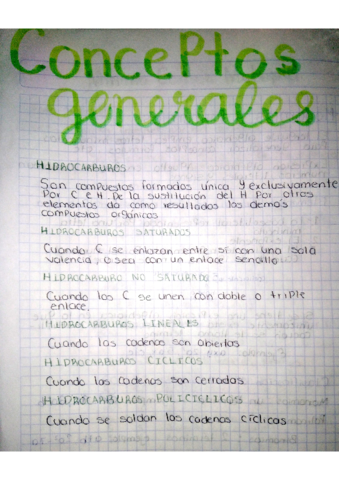 Conceptos
generales
HIDROCARBUROS
Son compuestos formados única y exclusivamente
Por C e H. De la sustitución del H Por otros
elementos da como resultados los demás
compuestos orgánicos
HIDROCARBUROS SATURADOS
Cuando C se enlazan entre sí con una sola
valencia, o sea con un enlace sencillo
HIDROCARBURO NO SATURADO
Cuando los C se unen con doble o triple
enlace.
HIDROCARBUROS LINEALES
Cuando las cadenas son abiertas
HIDROCARBUROS CICLICOS
Cuando las cadenas son cerradas
HIDROCARBUROS POLICICLICOS
Cuando se soldan las cadenas cíclicas